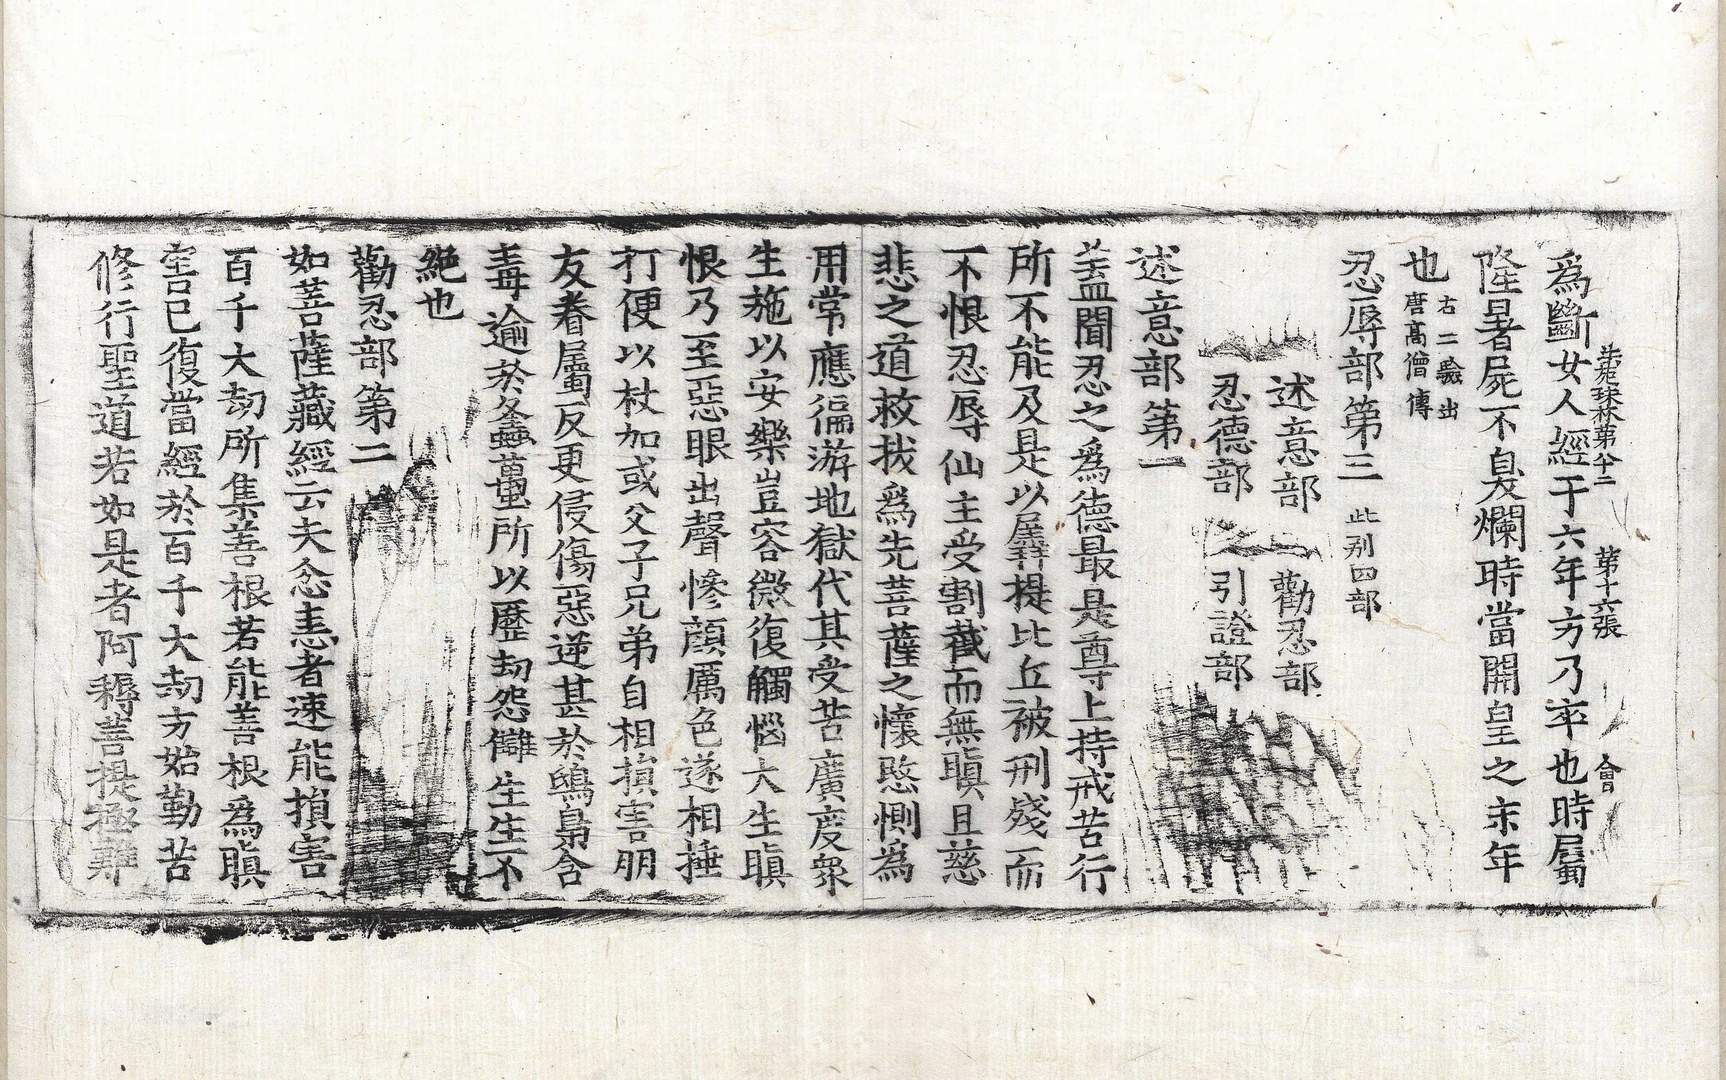 法苑珠林第八十二 第十六張 會
爲斷女人經于六年方乃卒也時屬
隆暑屍不臭爛時當開皇之末年
也右二驗出唐高僧傳
忍辱部第三此別四部
述意部 勸忍部
忍德部 引證部
述意部第一
蓋聞忍之爲德最是尊上持戒苦行
所不能及是以羼提比丘被刑殘而
不恨忍辱仙主受割截而無瞋且慈
悲之道救拔爲先菩薩之懷愍惻爲
用常應徧游地獄代其受苦廣度衆
生施以安樂豈容微復觸惱大生瞋
恨乃至惡眼出聲慘顔厲色遂相捶
打便以杖加或父子兄弟自相損害朋
友眷屬反更侵傷惡逆甚於鴟梟含
毒逾於蜂蠆所以歷劫怨讎生生不
絕也
勸忍部第二
如菩薩藏經云夫忿恚者速能損害
百千大劫所集善根若能善根爲瞋
害已復當經於百千大劫方始勤苦
修行聖道若如是者阿耨菩提極難